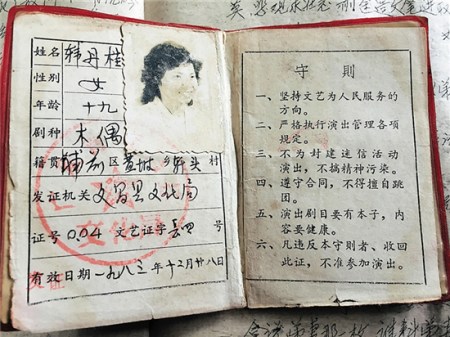 姓名 韩丹桂
性别 女
年龄 十九
剧种 木偶
籍贯 铺前区 乡 头村
发证机关 文昌县文化局
证号 004 文艺证字 号
有效日期一九八三年十二月廿八日
守则
一、坚持文艺为人民服务的
方向。
二、严格执行演出管理各项
规定。
三、不为封建迷信活动
演出,不搞精神污染。
四、遵守合同,不得擅自跳
团。
五、演出剧目要有本子,内
容要健康。
六、凡违反本守则者、收回
此证,不准参加演出。